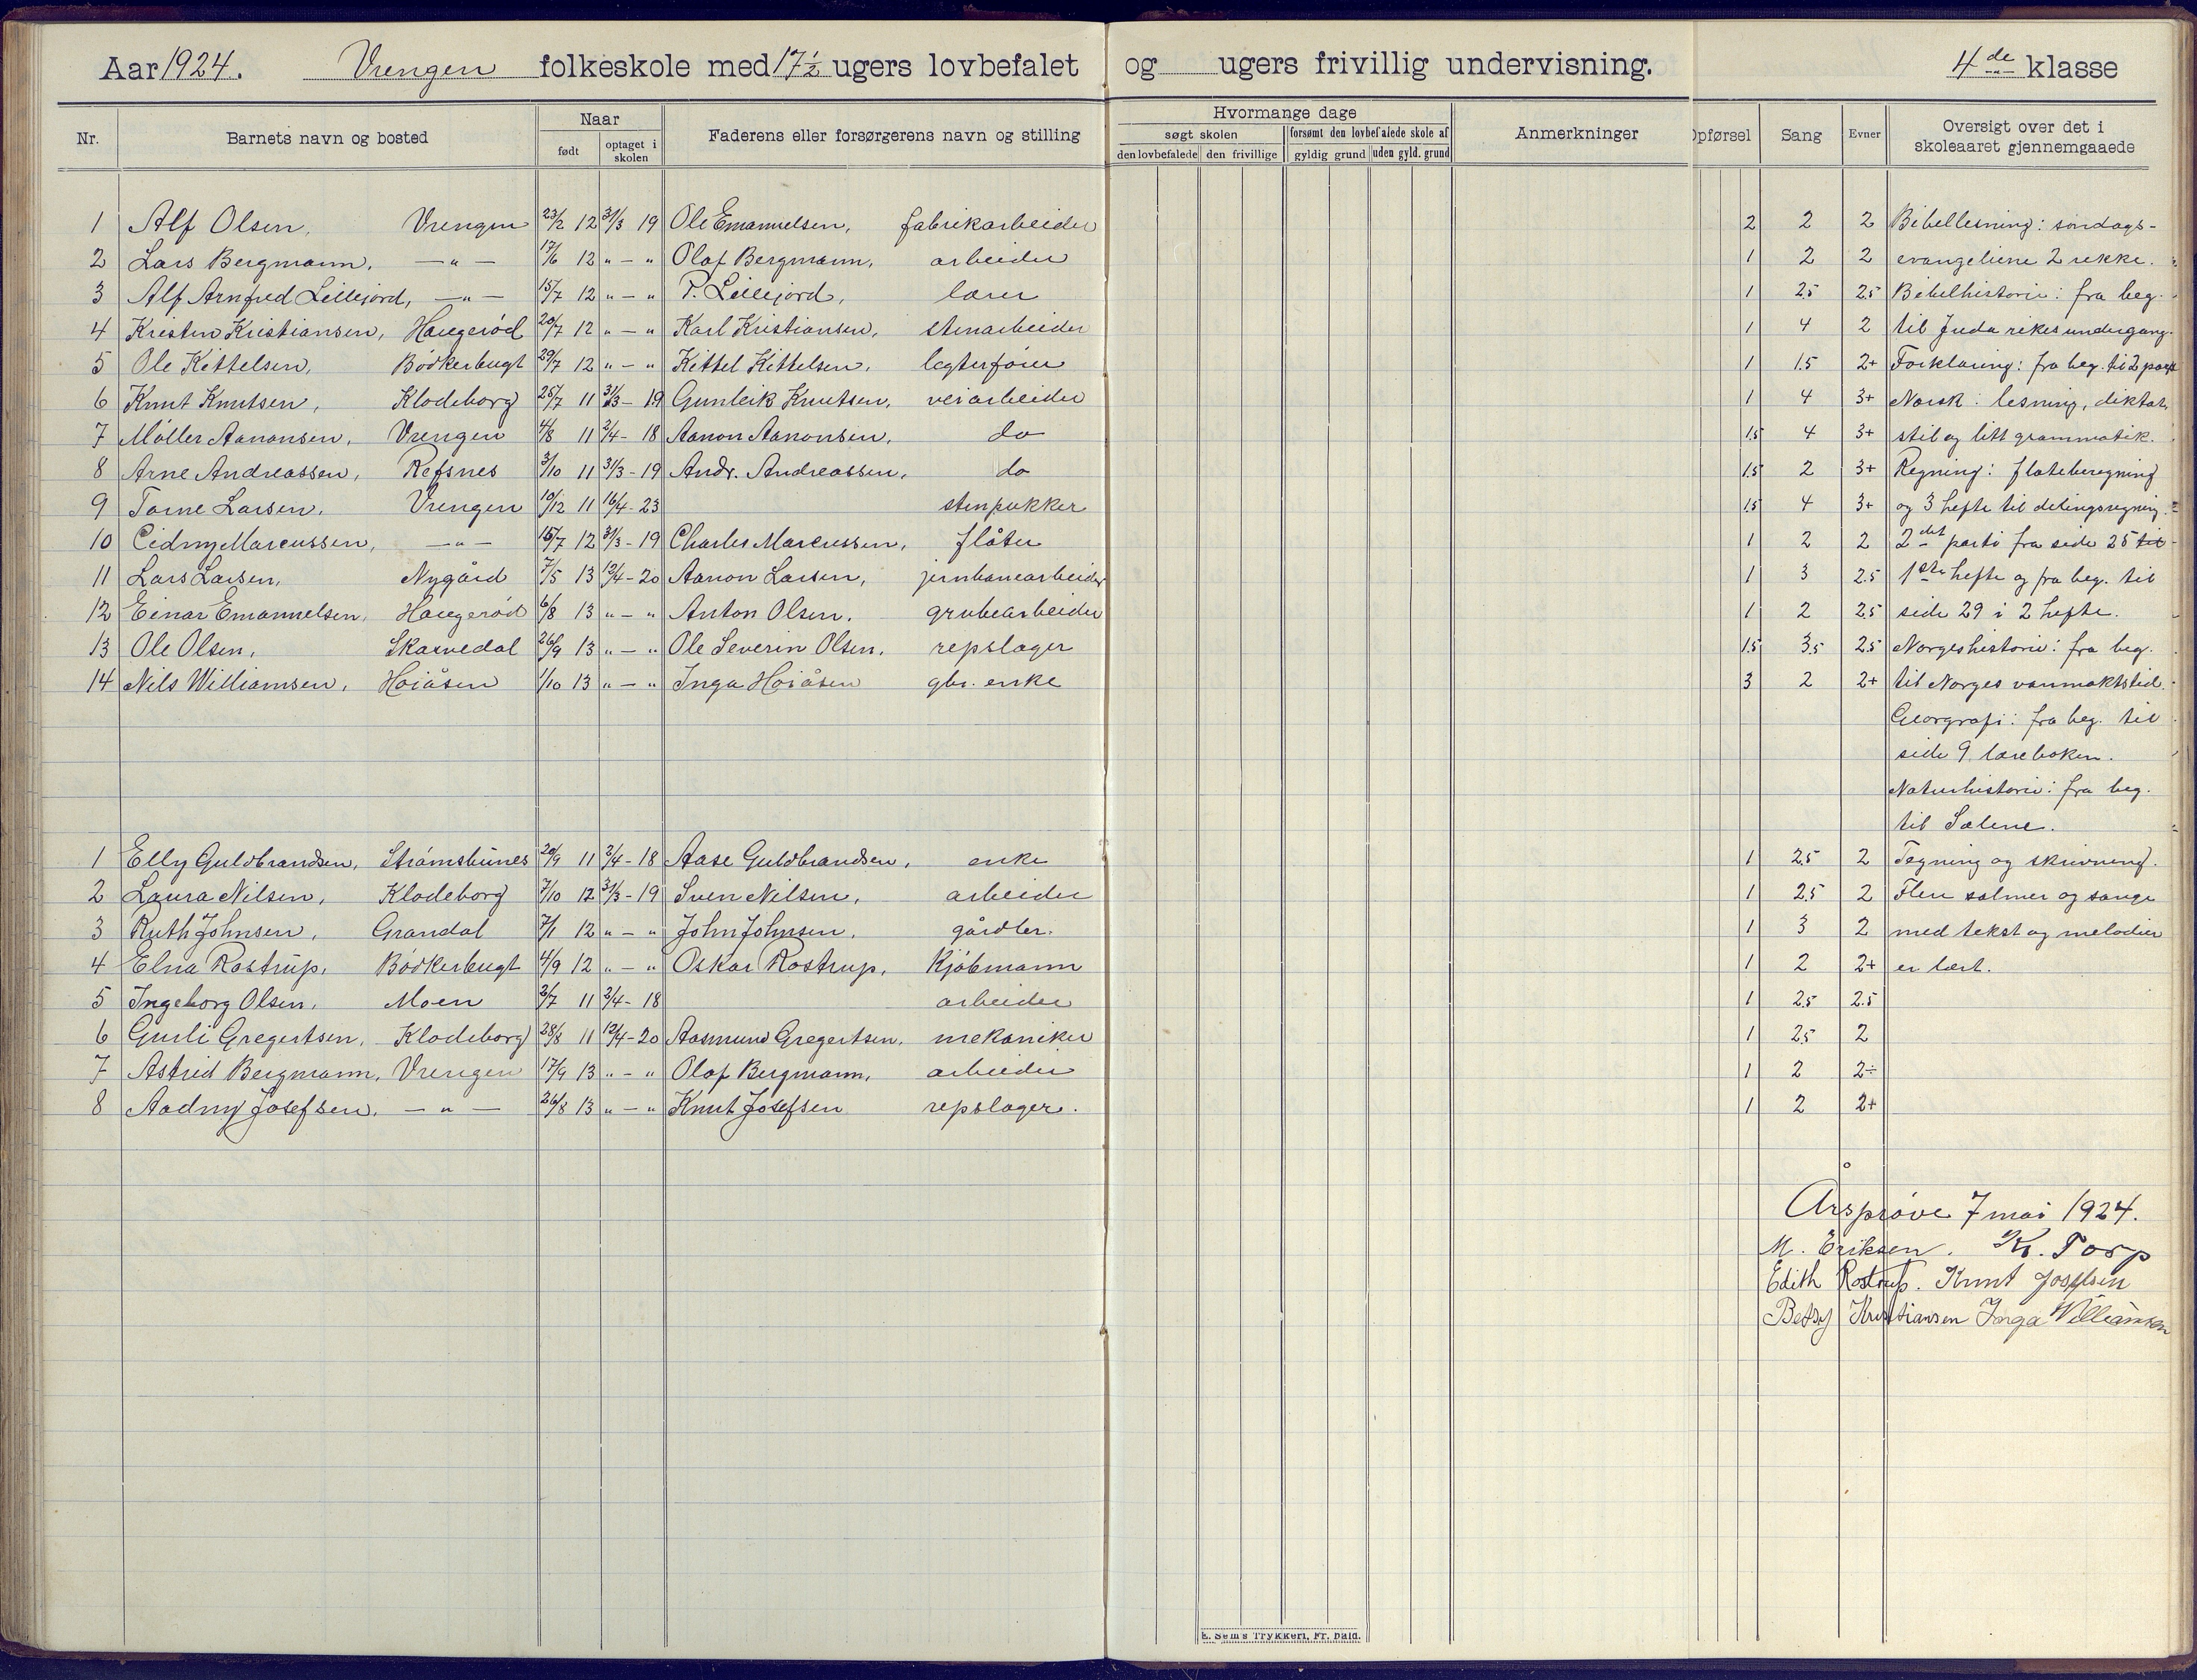 Aar 1924. Vrengen folkeskole med 17½ ugers lovbefalet og ugers frivillig undervisning. 4de klasse
Nr. Barnets navn og bosted Naar født optaget i skolen Faderens eller forsørgerens navn og stilling Hvormange dage søgt skolen den lovbefalede den frivillige forsømt den lovbefalede skole af gyldig grund uden gyld. grund Anmerkninger Opførsel Sang Evner Oversigt over det i skoleaaret gjennemgaaede
1 Alf Olsen, Vrengen 23/2 12 31/3 19 Ole Emanuelsen, fabrikarbeider 2 2 2 Bibellesning: søndags-
2 Lars Bergmann, — " — 17/6 12 " — " Olaf Bergmann, arbeider 1 2 2 evangeliene 2 rekke.
3 Alf Arnfred Lillejord, — " — 15/7 12 " — " P. Lillejord, lærer 1 2.5 2.5 Bibelhistorie: fra beg.
4 Kristen Kristiansen, Haugerød 20/7 12 " — " Karl Kristiansen, stenarbeider 1 4 2 til Juda rikes undergang.
5 Ole Kittelsen, Bødkerbugt 29/7 12 " — " Kittel Kittelsen, legterfører 1 1.5 2+ Forklaring: fra beg. til 2 part
6 Knut Knutsen, Klodeborg 25/7 11 31/3 – 19 Gunleik Knutsen, veiarbeider 1 4 3+ Norsk: lesning, diktat,
7 Møller Aanonsen, Vrengen 4/8 11 2/4 – 18 Aanon Aanonsen, do 1.5 4 3+ stil og litt grammatik.
8 Arne Andreassen, Refsnes 3/10 11 31/3 – 19 Andr. Andreassen, do 1.5 2 3+ Regning: flateberegning
9 Tarne Larsen, Vrengen 10/12 11 16/4 – 23 stenpukker 1.5 4 3+ og 3 hefte til delingsregning.
10 Eidny Marcussen, — " — 15/7 12 31/3 – 19 Charles Marcussen, fløter 1 2 2 2det parti fra side 25 til
11 Lars Larsen, Nygård 7/5 13 12/4 – 20 Aanon Larsen, jernbanearbeider 1 3 2.5 1ste hefte og fra beg. til
12 Einar Emanuelsen, Haugerød 6/8 13 " – " Anton Olsen, grubearbeider 1 2 2.5 side 29 i 2 hefte.
13 Ole Olsen, Skarvedal 26/9 13 " — " Ole Severin Olsen, repslager 1.5 3.5 2.5 Norgeshistorie: fra beg.
14 Nils Williamsen, Høiåsen 1/10 13 " — " Inga Høiåsen gbr. enke 3 2 2+ til Norges vanmaktstid.
Georgrafi: fra beg. til
side 9 læreboken.
Naturhistorie: fra beg.
til Sælene.
1 Elly Guldbrandsen, Strømsbunes 20/9 11 2/4 – 18 Aase Guldbrandsen, enke 1 2.5 2 Tegning og skrivning.
2 Laura Nilsen, Klodeborg 7/10 12 31/3 – 19 Sven Nilsen, arbeider 1 2.5 2 Flere salmer og sange
3 Ruth Johnsen, Grandal 7/1 12 " — " John Johnsen, gårdbr. 1 3 2 med tekst og melodier
4 Elna Rostrup, Bødkerbugt 4/9 12 " — " Oskar Rostrup, Kjøbmann 1 2 2+ er lært.
5 Ingeborg Olsen, Moen 2/7 11 2/4 – 18 arbeider 1 2.5 2.5
6 Gurli Gregertsen, Klodeborg 28/8 11 12/4 – 20 Aasmund Gregertsen, mekaniker 1 2.5 2
7 Astrid Bergmann, Vrengen 17/9 13 " – " Olaf Bergmann, arbeider 1 2 2÷
8 Aadny Josefsen, — " — 26/8 13 " — " Knut Josefsen repslager. 1 2 2+
Årsprøve 7 mai 1924.
M. Eriksen. Kr. Torp
Edith Rostrup. Knut Josefsen
Betsy Kristiansen Inga Williamsen
E. Sem's Trykkeri, Fr. hald.